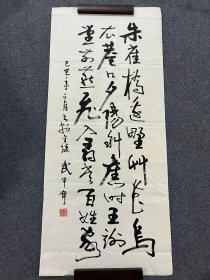 朱雀橋邊野艸花烏
衣巷口夕陽斜舊时王謝
堂前燕飛入尋常百姓家
武中奇